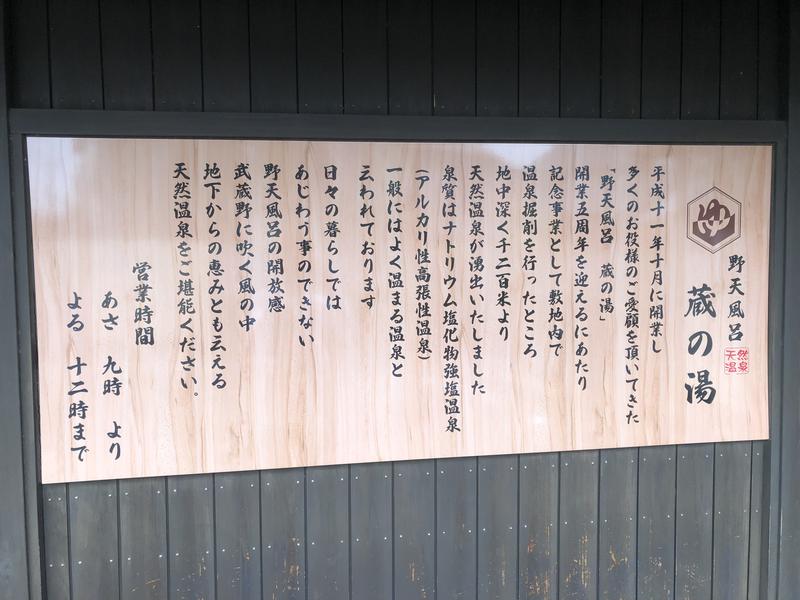 ゆ
野天風呂
天然温泉
蔵の湯
平成十一年十月に開業し
多くのお役様のご愛顧を頂いてきた
「野天風呂 蔵の湯」
開業五周年を迎えるにあたり
記念事業として敷地内で
温泉掘削を行ったところ
地中深く千二百米より
天然温泉が湧出いたしました
泉質はナトリウム塩化物強塩温泉
(アルカリ性高張性温泉)
一般にはよく温まる温泉と
云われております
日々の暮らしでは
あじわう事のできない
野天風呂の開放感
武蔵野に吹く風の中
地下からの恵みとも云える
天然温泉をご堪能ください。
営業時間
あさ 九時 より
よる 十二時まで